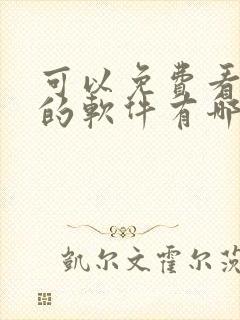 可以免費看
的軟件有哪
凱尔文霍尔茨